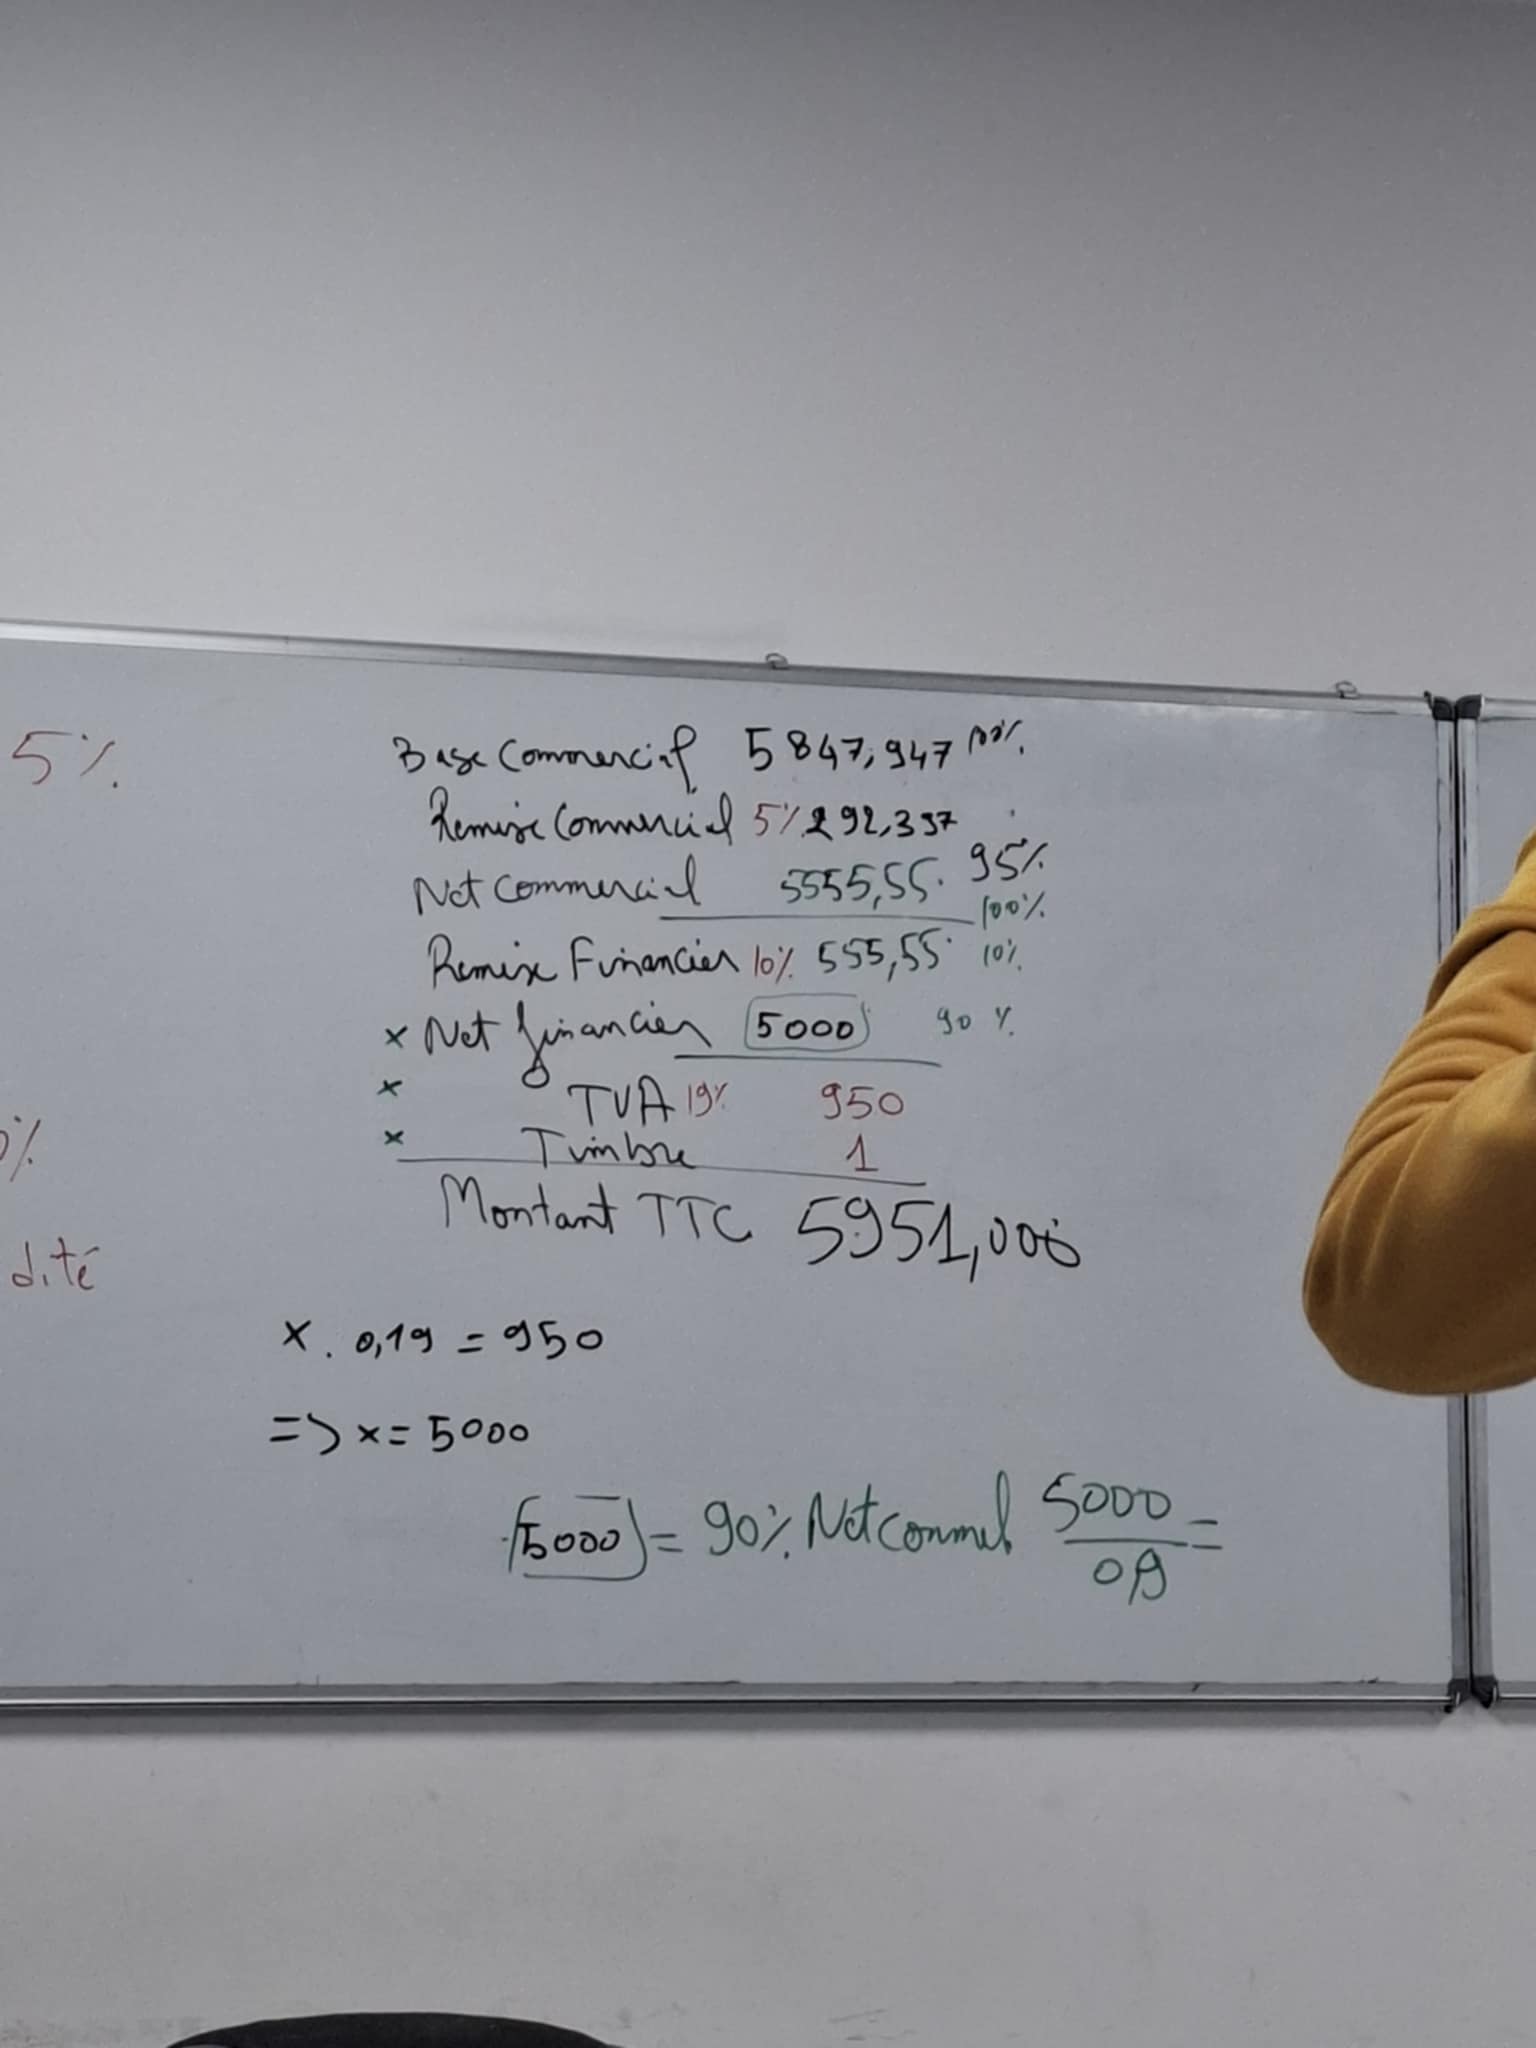 5%
Base Commercial 5847,947 100%
Remise Commercial 5% 292,397
Net Commercial 5555,55 95%
100%
Remise Financier 10% 555,55 10%
x Net financier 5000 90 %
x TVA 19% 950
x Timbre 1
Montant TTC 5951,000
0%
dité
x . 0,19 = 950
=> x = 5000
5000 = 90% Net commel 5000 / 0,9 =